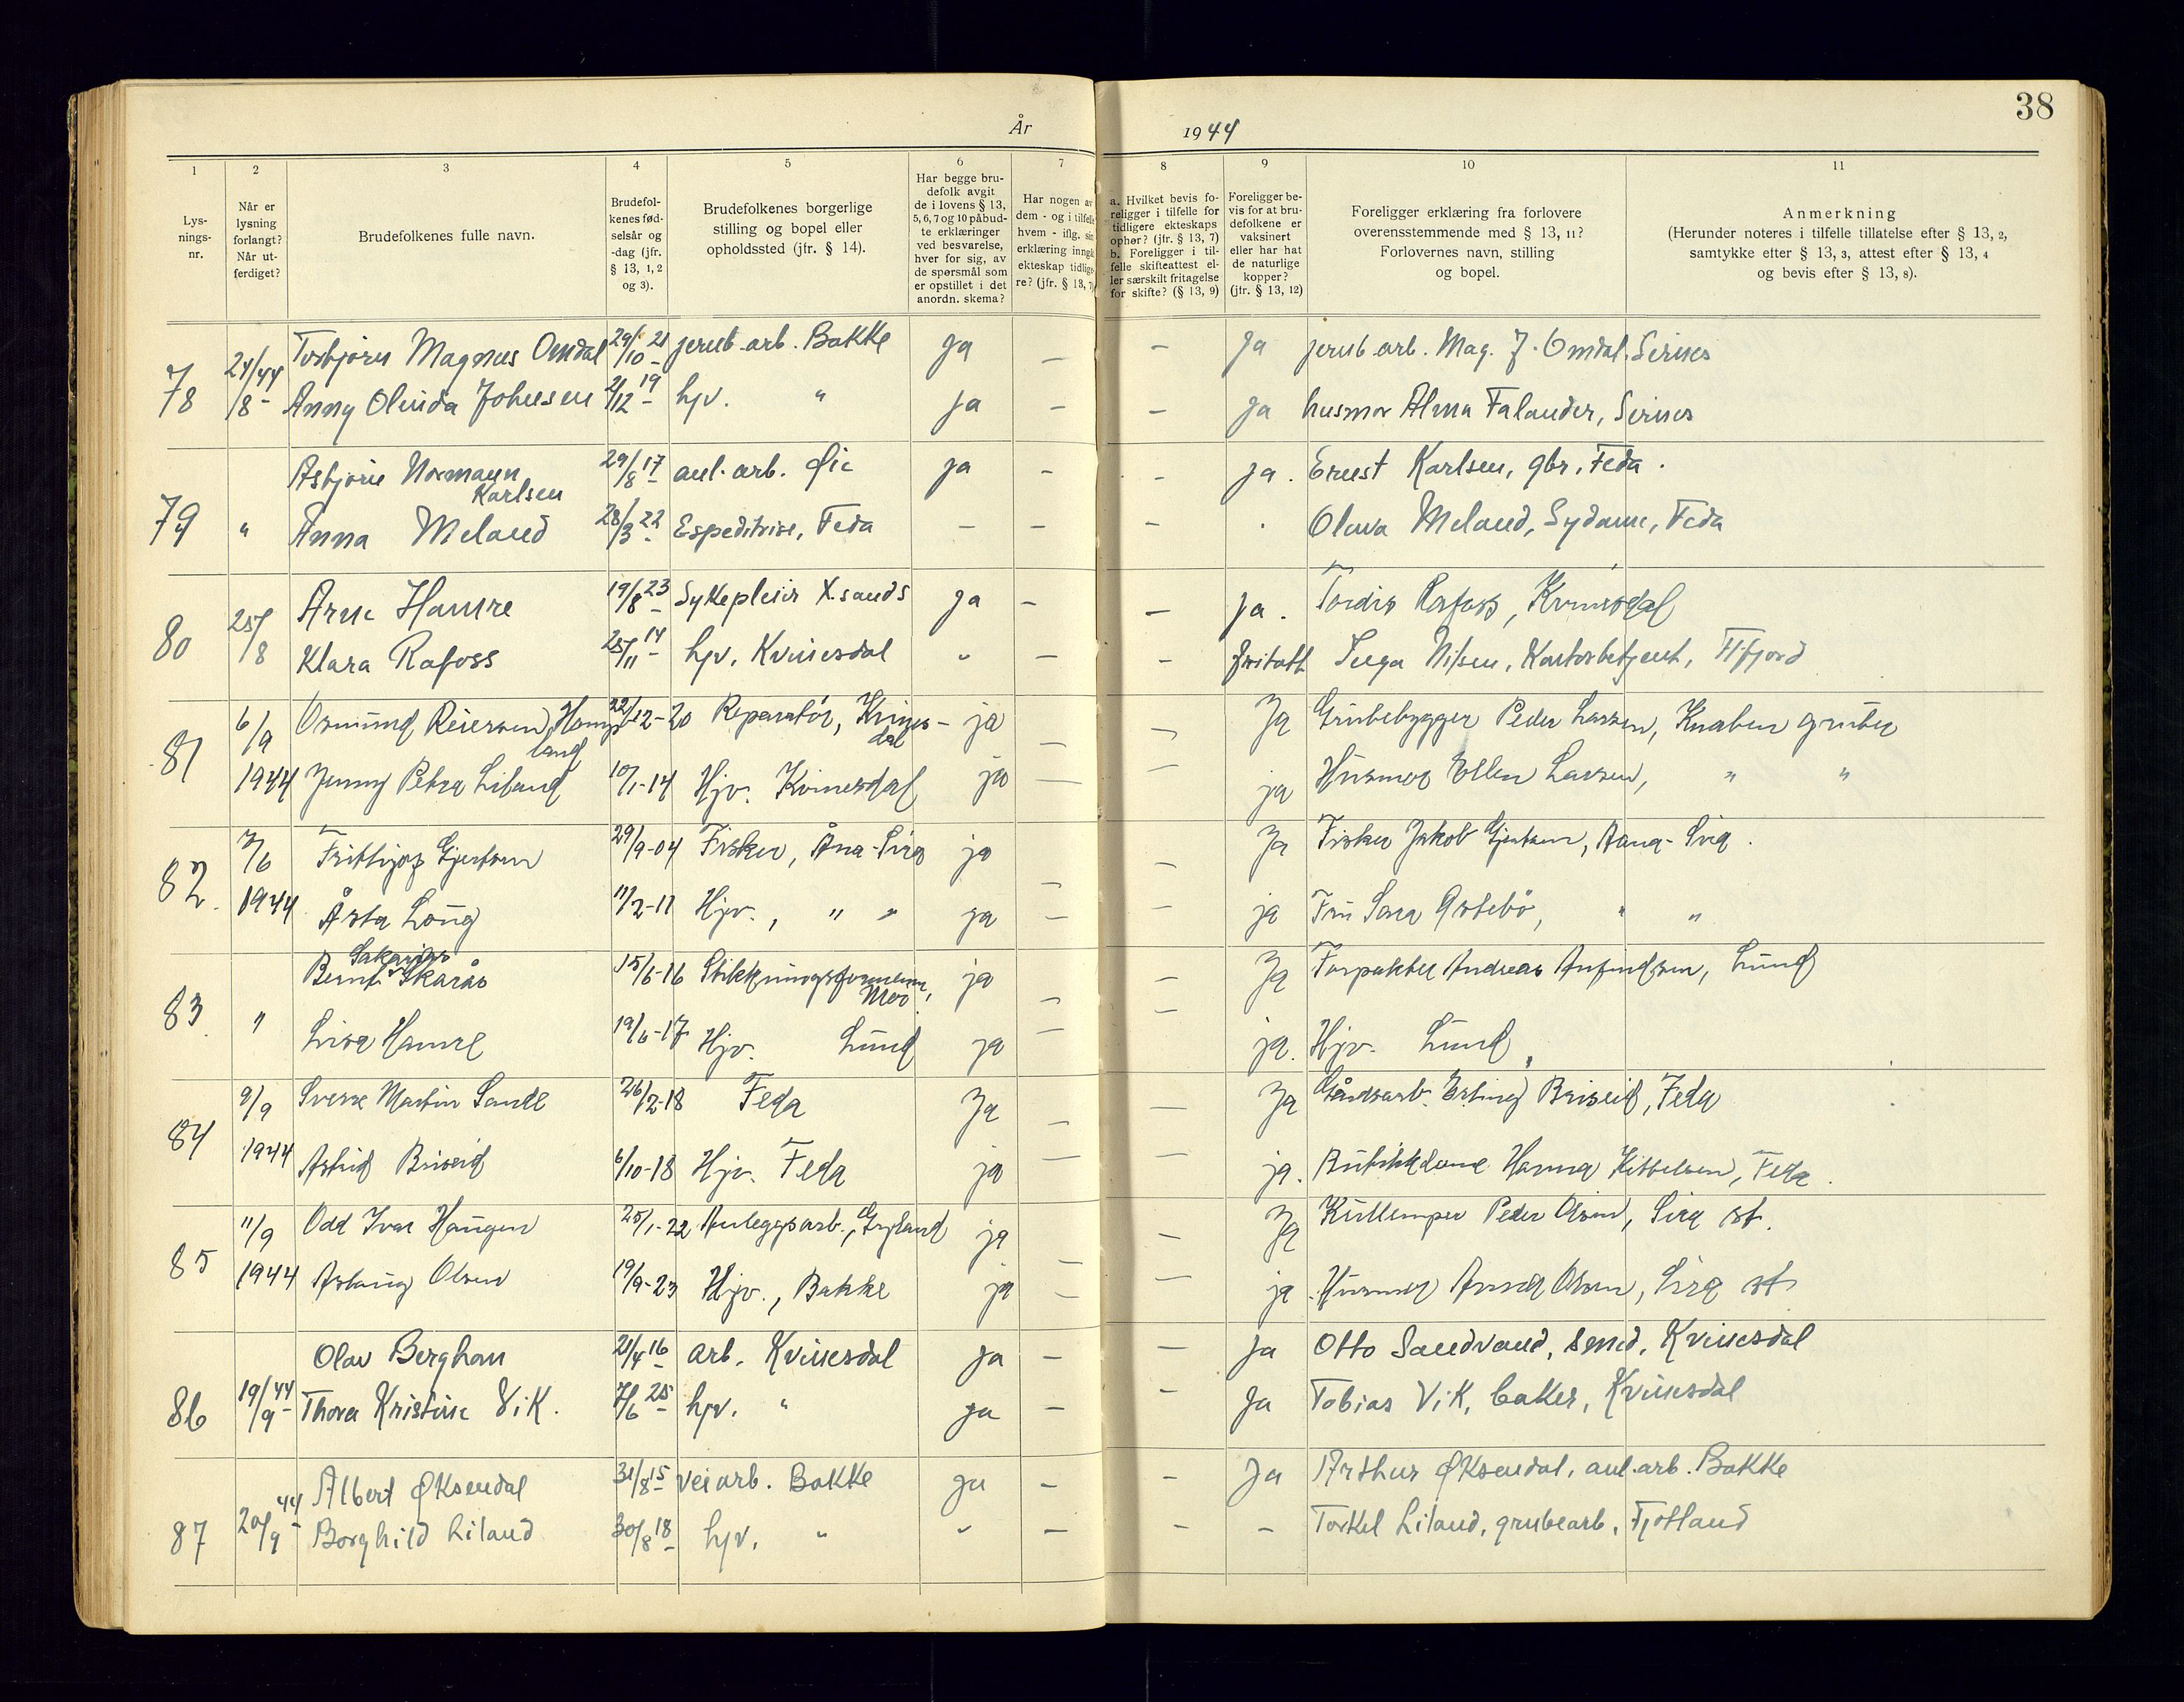 38
År 1944
1 2 3 4 5 6 7 8 9 10 11
Lys-
nings-
nr.
Når er
lysning
forlangt?
Når ut-
ferdiget?
Brudefolkenes fulle navn.
Brudefol-
kenes fød-
selsår og
-dag (jfr.
§ 13, 1, 2
og 3).
Brudefolkenes borgerlige
stilling og bopel eller
opholdssted (jfr. § 14).
Har begge bru-
defolk avgit
de i lovens § 13,
5, 6, 7 og 10 påbud-
te erklæringer
ved besvarelse,
hver for sig, av
de spørsmål som
er opstillet i det
anordn. skema?
Har nogen av
dem - og i tilfelle
hvem - iflg. sin
erklæring inngå
ekteskap tidlige-
re? (jfr. § 13, 7)
a. Hvilket bevis fo-
religger i tilfelle for
tidligere ekteskaps
ophør? (jfr. § 13, 7)
b. Foreligger i til-
felle skifteattest el-
ler særskilt fritagelse
for skifte? (§ 13, 9)
Foreligger be-
vis for at bru-
defolkene er
vaksinert
eller har hat
de naturlige
kopper?
(jfr. § 13, 12)
Foreligger erklæring fra forlovere
overensstemmende med § 13, 11?
Forlovernes navn, stilling
og bopel.
Anmerkning
(Herunder noteres i tilfelle tillatelse efter § 13, 2,
samtykke efter § 13, 3, attest efter § 13, 4
og bevis efter § 13, 8).
78 21/8-44 Torbjørn Magnus Omdal 29/10-21 jernb.arb. Bakke Ja — — Ja jernb.arb. Mag. J. Omdal, Sirnes
Anny Olinda Johnsen 2/12-19 hjv. " Ja — — Ja husmor Alma Falander, Sirnes
79 " Asbjørn Normann Karlsen 29/8-17 anl.arb. Øie ja — — ja. Ernest Karlsen, gbr, Feda.
Anna Meland 28/3-22 Espeditrise, Feda — — — Meland, Sydame, Feda
80 25/8 Arne Hamre 19/8-23 Sykepleier X.sands ja — — ja. Tordis Rafoss, Kvinesdal
Klara Rafoss 25/11-14 hjv. Kvinesdal " — — fritatt Inga Nilsen, Kontorbetjent, Fl.fjord
81 6/9 1944 Osmund Reiersen Homp land 22/12-20 Reparatør, Kvines- dal ja — — Ja Grubebygger Peder Larsen, Knaben gruber
Jenny Petra Liland 10/1-14 Hjv. Kvinesdal ja — — ja Husmor Ellen Larsen, " "
82. 7/6 1944 Frithjof Gjertsen 29/9-04 Fisker, Åna-Sira ja — — Ja Fisker Jakob Gjertsen, Aana-Sira.
Åsta Long 11/2-11 Hjv., " " ja — — ja Fru Sara " "
83. " Bernt Sakarias Skarås 15/6-16 Moi ja — — Ja Forpakter Andreas Anfindsen, Lund
Lisa Hamre 19/6-17 Hjv. Lund ja — — ja. Hjv. Lund
84 9/9 1944 Sverre Martin Sande 26/2-18 Feda Ja — — Ja Gårdsarb. Erling Briseid, Feda
Astrid Briseid 6/10-18 Hjv. Feda ja — — ja. Butikkdame Hanna Kittelsen, Feda.
85 11/9 1944 Odd Ivar Haugen 25/1-22 Anleggsarb., Gyland ja — — Ja Kullemper Peder Olsen, Sira st.
Aslaug Olsen 19/9-23 Hjv., Bakke ja — — ja Husmor Anna Olsen, Sira st
86 19/9-44 Olav Berghom 21/4-16 arb. Kvinesdal ja — — Ja Otto Sandvand, smed, Kvinesdal
Thora Kristine Vik. 7/6-25 hjv. " ja — — Ja Tobias Vik, baker, Kvinesdal
87 20/9-44 Albert Øksendal 31/8-15 veiarb. Bakke ja — — Ja Arthur Øksendal, anl.arb. Bakke
Borghild Liland 30/8-18 hjv. " " — — — Torkel Liland, grubearb, Fjotland